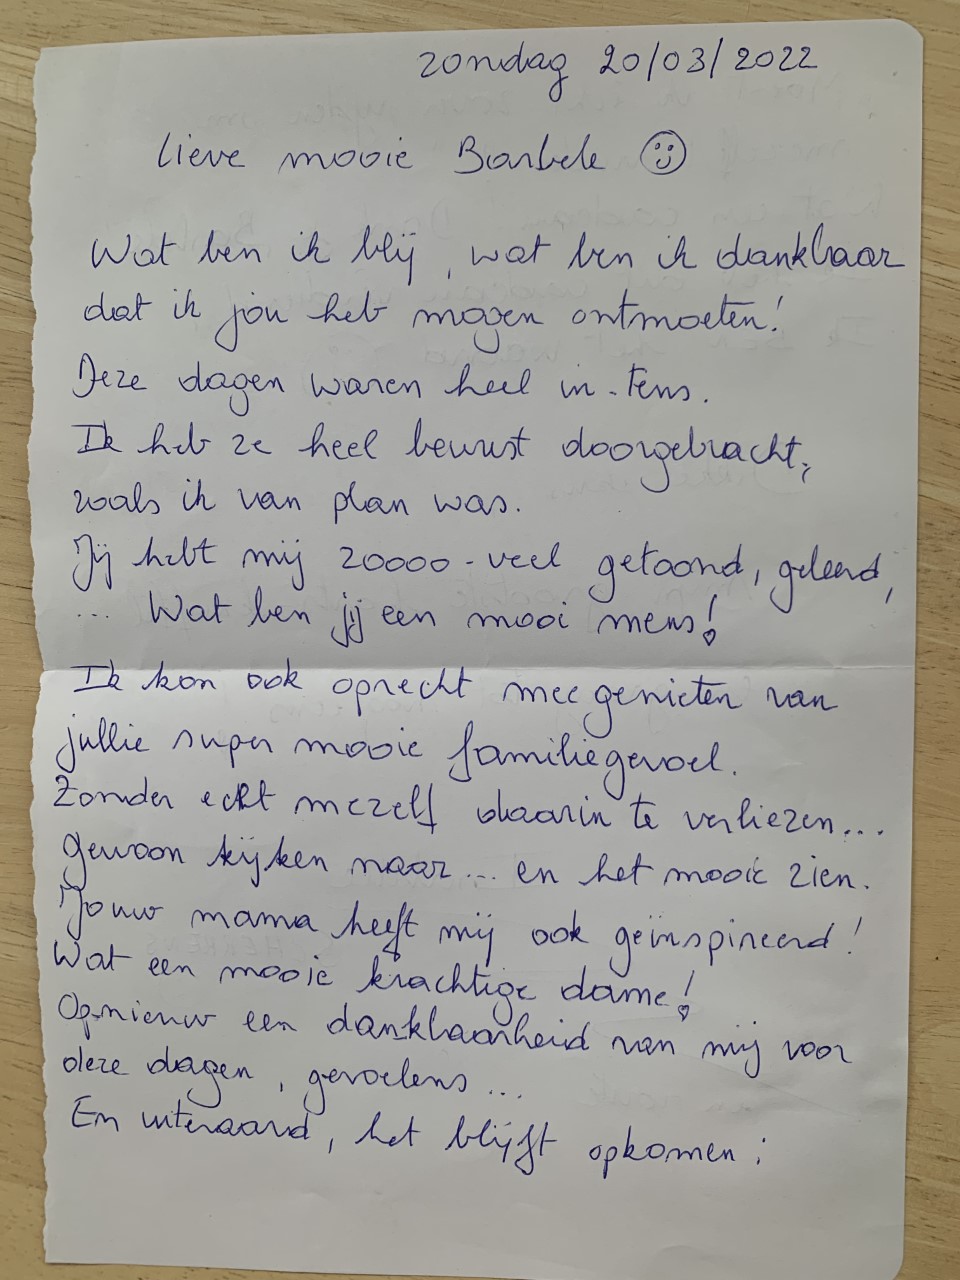 zondag 20/03/2022
Lieve mooie Barbele ☺
Wat ben ik blij, wat ben ik dankbaar
dat ik jou heb mogen ontmoeten!
Deze dagen waren heel in-tens.
Ik heb ze heel bewust doorgebracht,
zoals ik van plan was.
Jij hebt mij 20000-veel getoond, geleerd,
... Wat ben jij een mooi mens!
Ik kon ook oprecht mee genieten van
jullie super mooie familiegevoel.
Zonder echt mezelf daarin te verliezen...
Gewoon kijken naar... en het mooie zien.
Jouw mama heeft mij ook geïnspireerd!
Wat een mooie krachtige dame!
Op-nieuw een dankbaarheid van mij voor
deze dagen, gevoelens...
En uiteraard, het blijft opkomen: